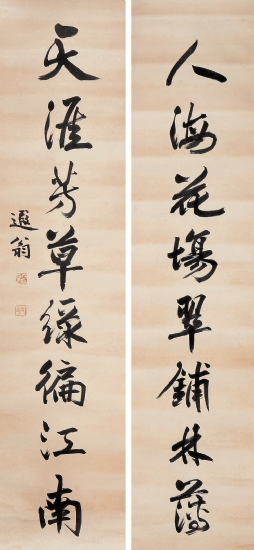 人海花場翠鋪林薄
天涯芳草綠徧江南
遐翁